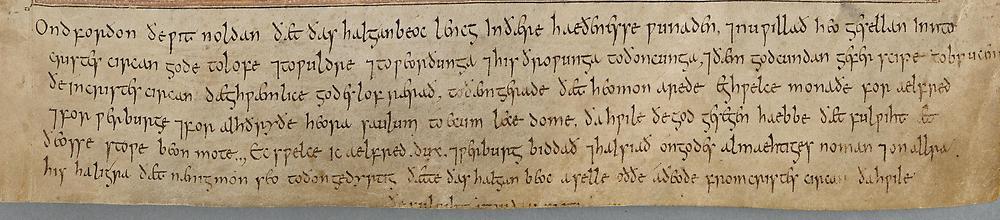 Ond forðon ðe ƿit noldan ðæt ðas halgan beoc lencg in ðære haeðenesse ƿunaden, ⁊ nu ƿillað heo gesellan inn to
cristes circan gode to lofe ⁊ to ƿuldre ⁊ to ƿeorðunga ⁊ his ðroƿunga to ðoncunga, ⁊ ðæm godcundan geferscipe to brucenne
ðe in cristes circan dæghƿæmlice godes lof rærað, to ðæm gerade ðæt heo mon arede eghƿelce monaðe for aelfred
⁊ for ƿerburge ⁊ for alhðryðe heora saulum to ecum lecedome, ða hƿile ðe god gesegen haebbe ðæt fulƿiht æt
ðeosse stoƿe beon mote., Ec sƿelce ic aelfred. dux. ⁊ ƿerburg biddað ⁊ halsiað on godes almaehtiges noman ⁊ on allra
his haligra ðæt nænigmon seo to ðon gedyrstig ðætte ðas halgan beoc aselle oððe aðeode from cristes circan ða hƿile